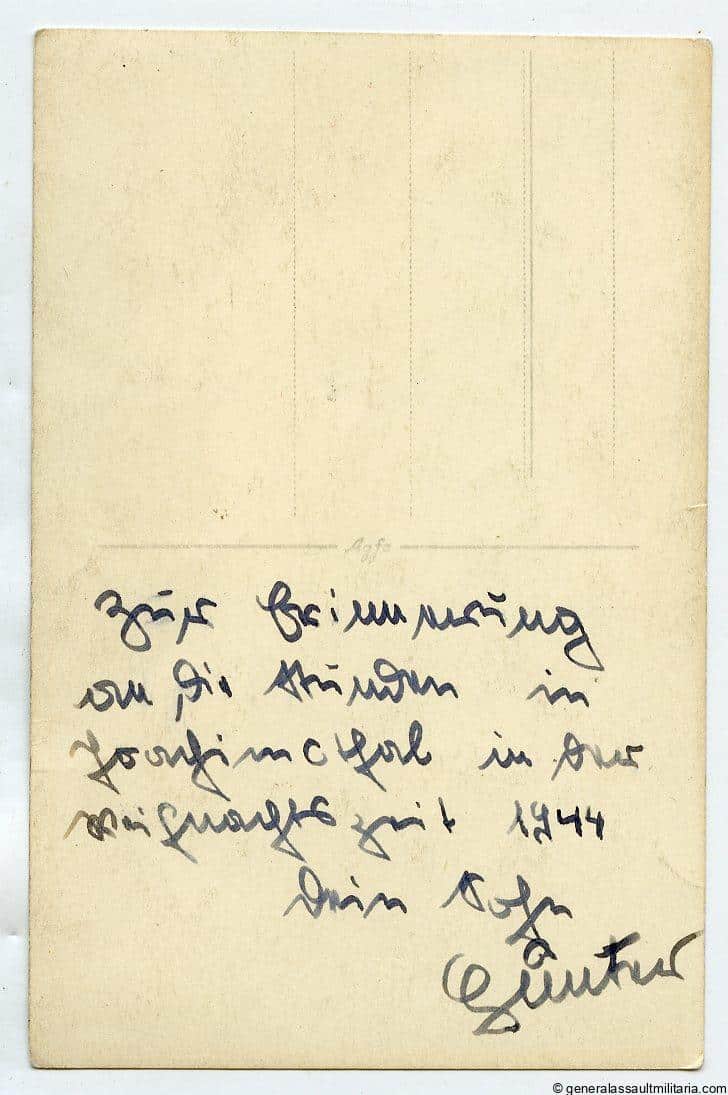 Agfa
Zur Erinnerung
an die Stunden in
Joachimsthal in der
Weihnachtszeit 1944
Dein Sohn
Günter
© generalassaultmilitaria.com